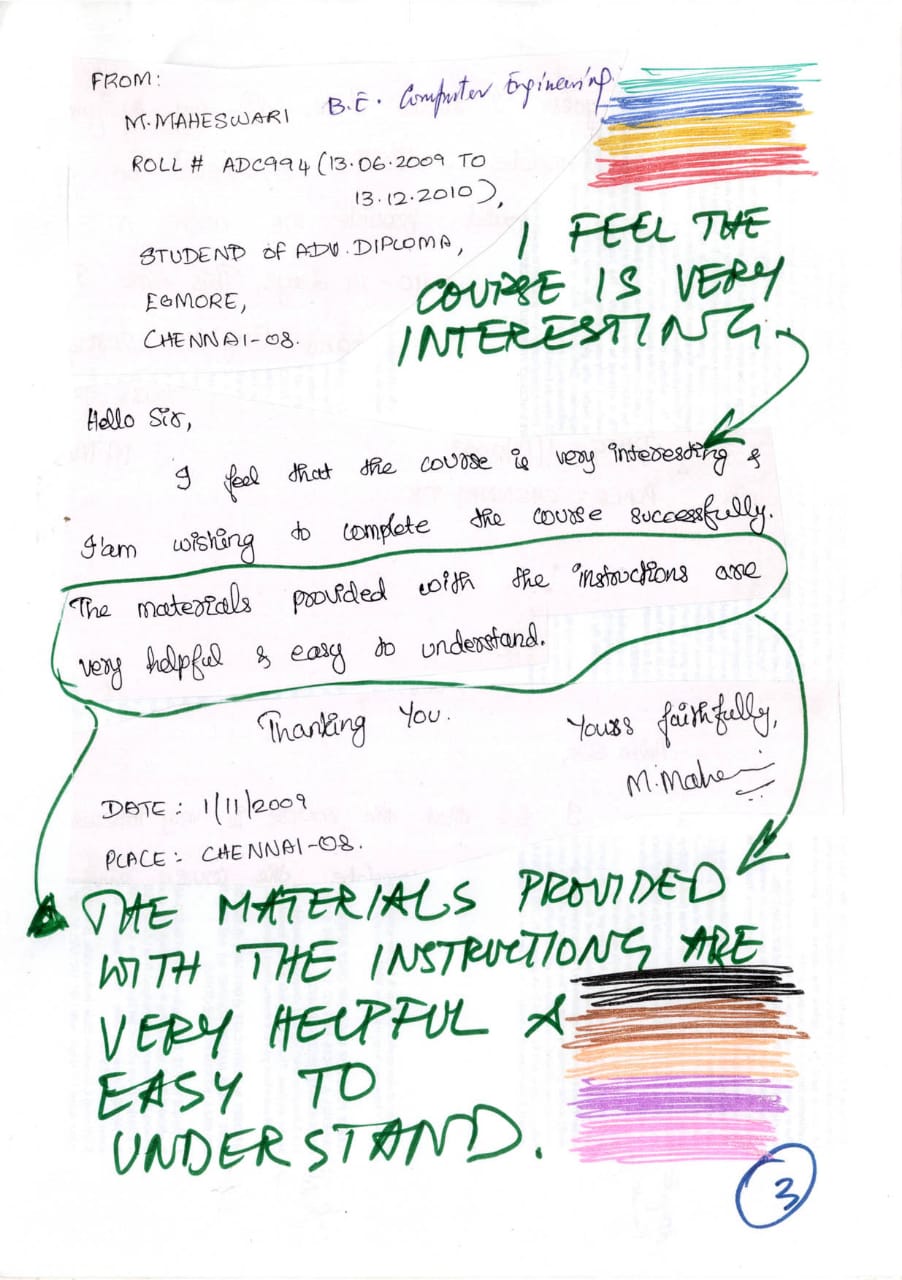 FROM:
M.MAHESWARI
B.E. Computer Engineering.
ROLL # ADC994 (13.06.2009 TO
13.12.2010),
STUDEND of ADV.DIPLOMA,
EGMORE,
CHENNAI-08.
I FEEL THE
COURSE IS VERY
INTERESTING.
Hello Sir,
I feel that the course is very interesting &
I'am wishing to complete the course successfully.
The materials provided with the instructions are
very helpful & easy to understand.
Thanking You.
Yours faithfully,
M.Mahe
DATE: 1/11/2009
PLACE: CHENNAI-08.
THE MATERIALS PROVIDED
WITH THE INSTRUCTIONS ARE
VERY HELPFUL &
EASY TO
UNDERSTAND.
3